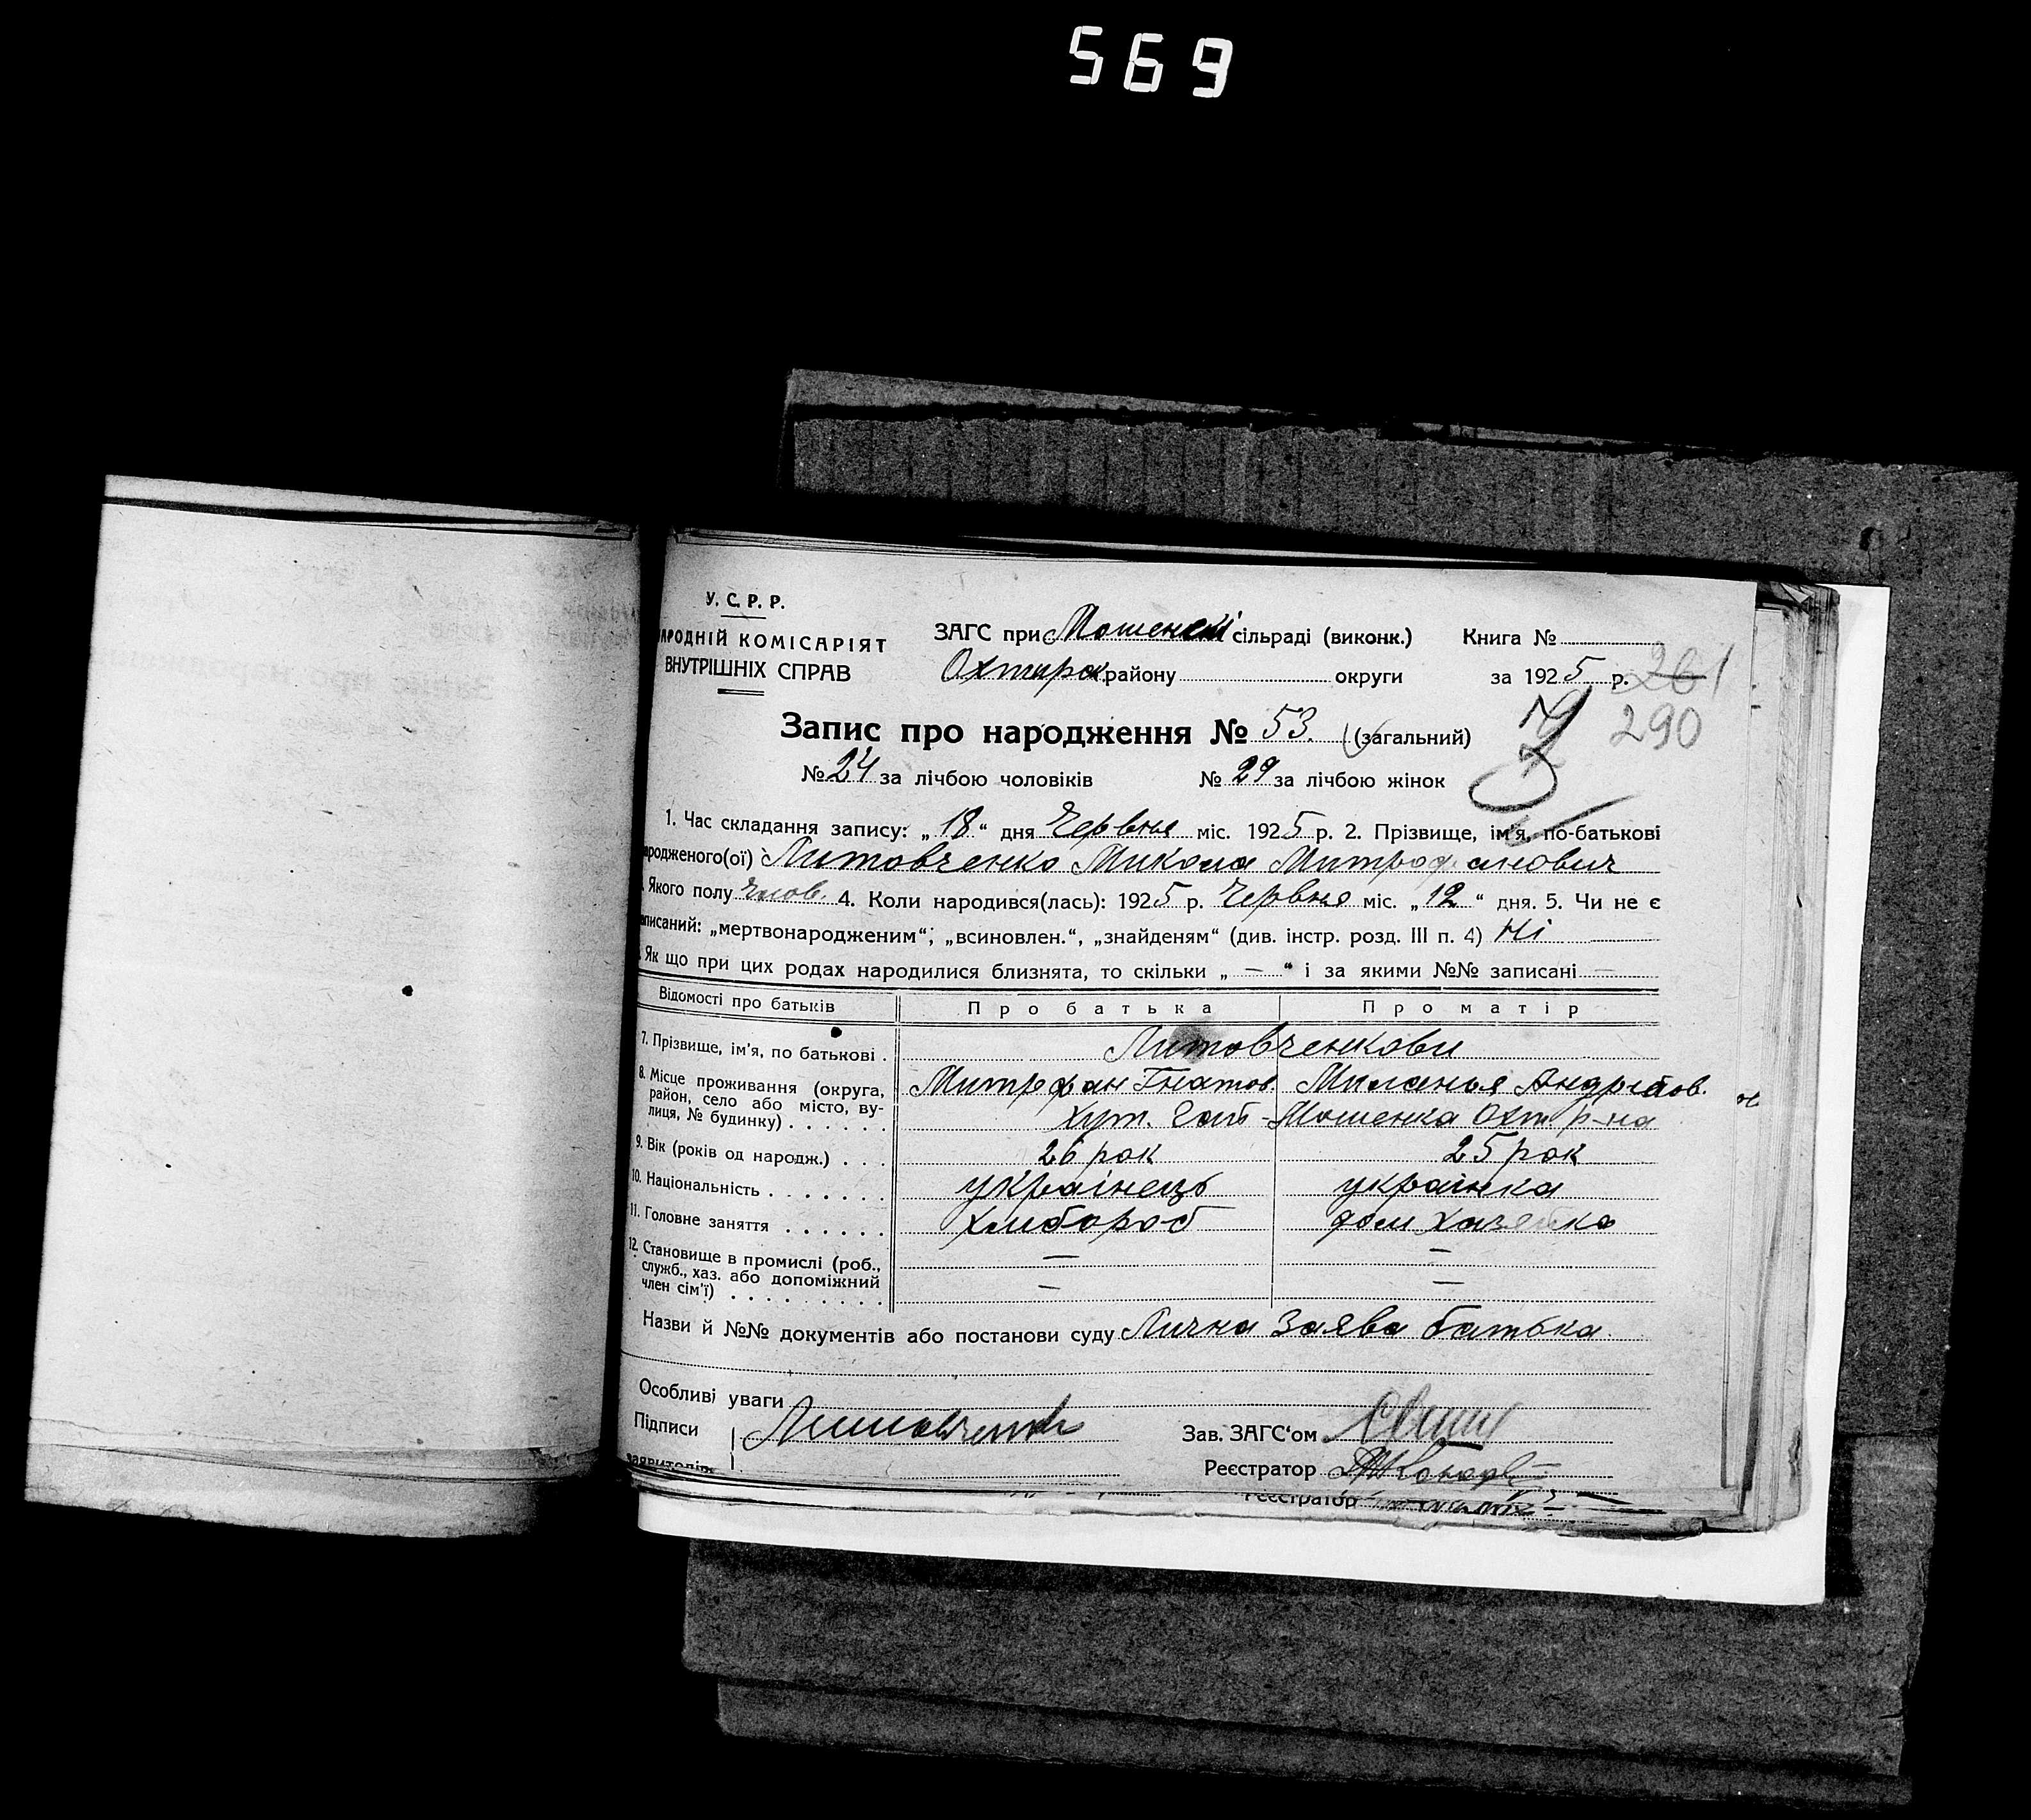 569
У. С. Р. Р.
НАРОДНІЙ КОМІСАРІЯТ
ВНУТРІШНІХ СПРАВ
ЗАГС при Мошенскі сільраді (виконк.) Книга №
Охтирк. району округи за 1925 р. 261
290
Запис про народження № 53. (загальний)
№ 24 за лічбою чоловіків № 29 за лічбою жінок
1. Час складання запису: „18“ дня Червня міс. 1925 р. 2. Прізвище, ім'я, по-батькові
народженого(ої) Литовченко Микола Митрофанович
Якого полу Чолов. 4. Коли народився(лась): 1925 р. Червня міс. „12“ дня. 5. Чи не є
записаний: „мертвонародженим“, „всиновлен.“, „знайденям“ (див. інстр. розд. III п. 4) Ні
Як що при цих родах народилися близнята, то скільки „ — “ і за якими №№ записані —
Відомості про батьків Про батька Про матір
7. Прізвище, ім'я, по батькові . Литовченкови
Митрофан Гнатов. Миланья Андріѣов.
8. Місце проживання (округа, район, село або місто, вулиця, № будинку) . . . . . Хут. Мошенка Охт. р-на
9. Вік (років од народж.) . . . 26 рок 25 рок
10. Національність . . . . . . . українець українка
11. Головне заняття . . . . . . хлибороб дом хазяйка
12. Становище в промислі (роб., служб., хаз. або допоміжний член сім'ї) . . . . . . . . . — —
— —
Назви й №№ документів або постанови суду Лична Заява батька.
Особливі уваги
Підписи Литовченко Зав. ЗАГС'ом
заявителів Реєстратор
Реєстратор